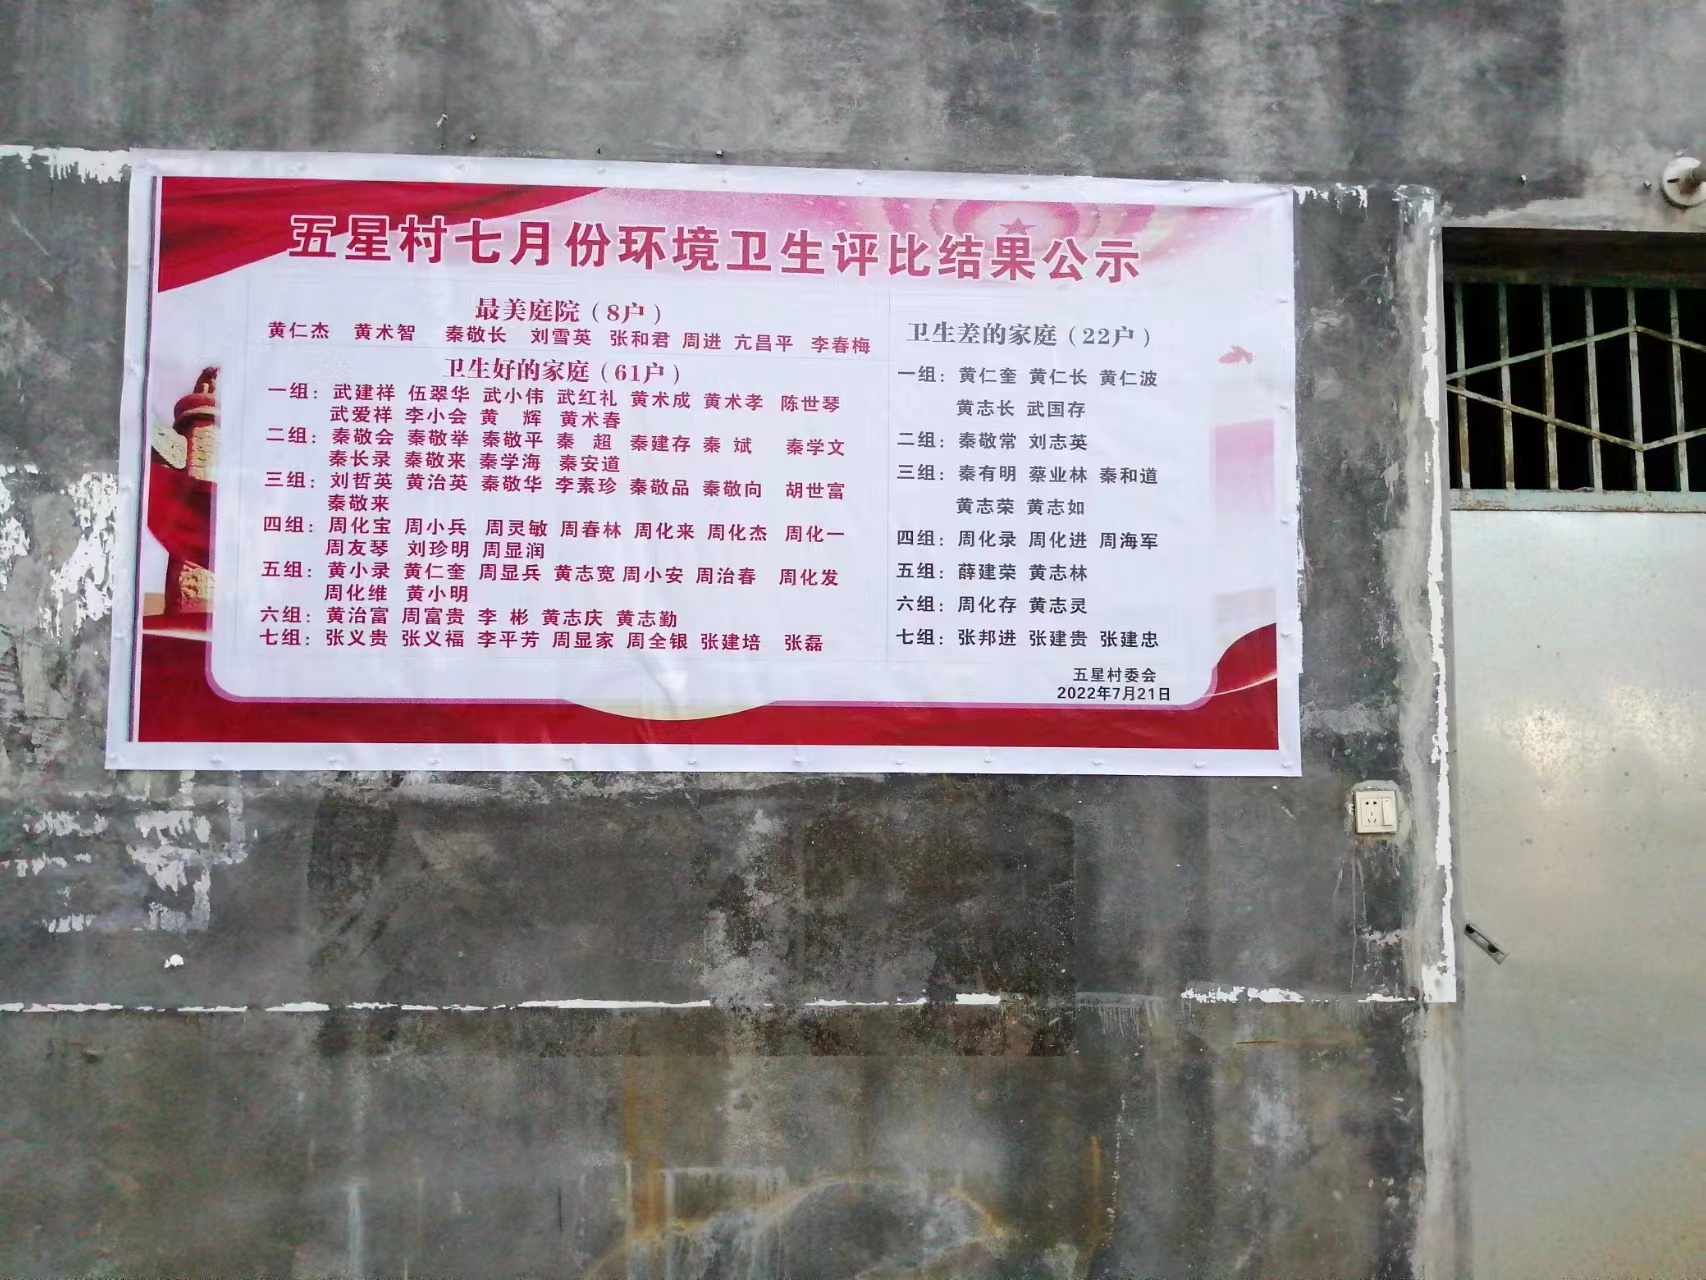 五星村七月份环境卫生评比结果公示
最美庭院（8户）
黄仁杰 黄术智 秦敬长 刘雪英 张和君 周进 亢昌平 李春梅
卫生好的家庭（61户）
一组：武建祥 伍翠华 武小伟 武红礼 黄术成 黄术孝 陈世琴
武爱祥 李小会 黄 辉 黄术春
二组：秦敬会 秦敬举 秦敬平 秦 超 秦建存 秦 斌 秦学文
秦长录 秦敬来 秦学海 秦安道
三组：刘哲英 黄治英 秦敬华 李素珍 秦敬品 秦敬向 胡世富
秦敬来
四组：周化宝 周小兵 周灵敏 周春林 周化来 周化杰 周化一
周友琴 刘珍明 周显润
五组：黄小录 黄仁奎 周显兵 黄志宽 周小安 周治春 周化发
周化维 黄小明
六组：黄治富 周富贵 李 彬 黄志庆 黄志勤
七组：张义贵 张义福 李平芳 周显家 周全银 张建培 张磊
卫生差的家庭（22户）
一组：黄仁奎 黄仁长 黄仁波
黄志长 武国存
二组：秦敬常 刘志英
三组：秦有明 蔡业林 秦和道
黄志荣 黄志如
四组：周化录 周化进 周海军
五组：薛建荣 黄志林
六组：周化存 黄志灵
七组：张邦进 张建贵 张建忠
五星村委会
2022年7月21日